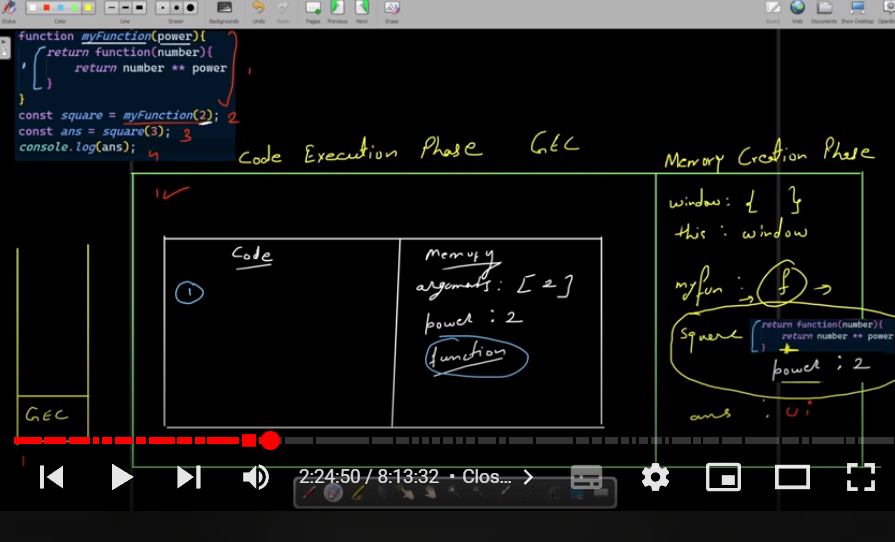 Stylus Color Line Eraser Backgrounds Undo Redo Pages Previous Next Erase Board Web Documents Show Desktop
function myFunction(power){
return function(number){
return number ** power
}
}
const square = myFunction(2); 2
const ans = square(3); 3
console.log(ans); 4
Code Execution Phase GEC
Memory Creation Phase
1
window: { }
this : window
Code
Memory
1
arguments: [ 2 ]
power : 2
function
myfun : f →
square
return function(number){
return number ** power
}
power : 2
ans : ui
GEC
2:24:50 / 8:13:32 • Clos... >